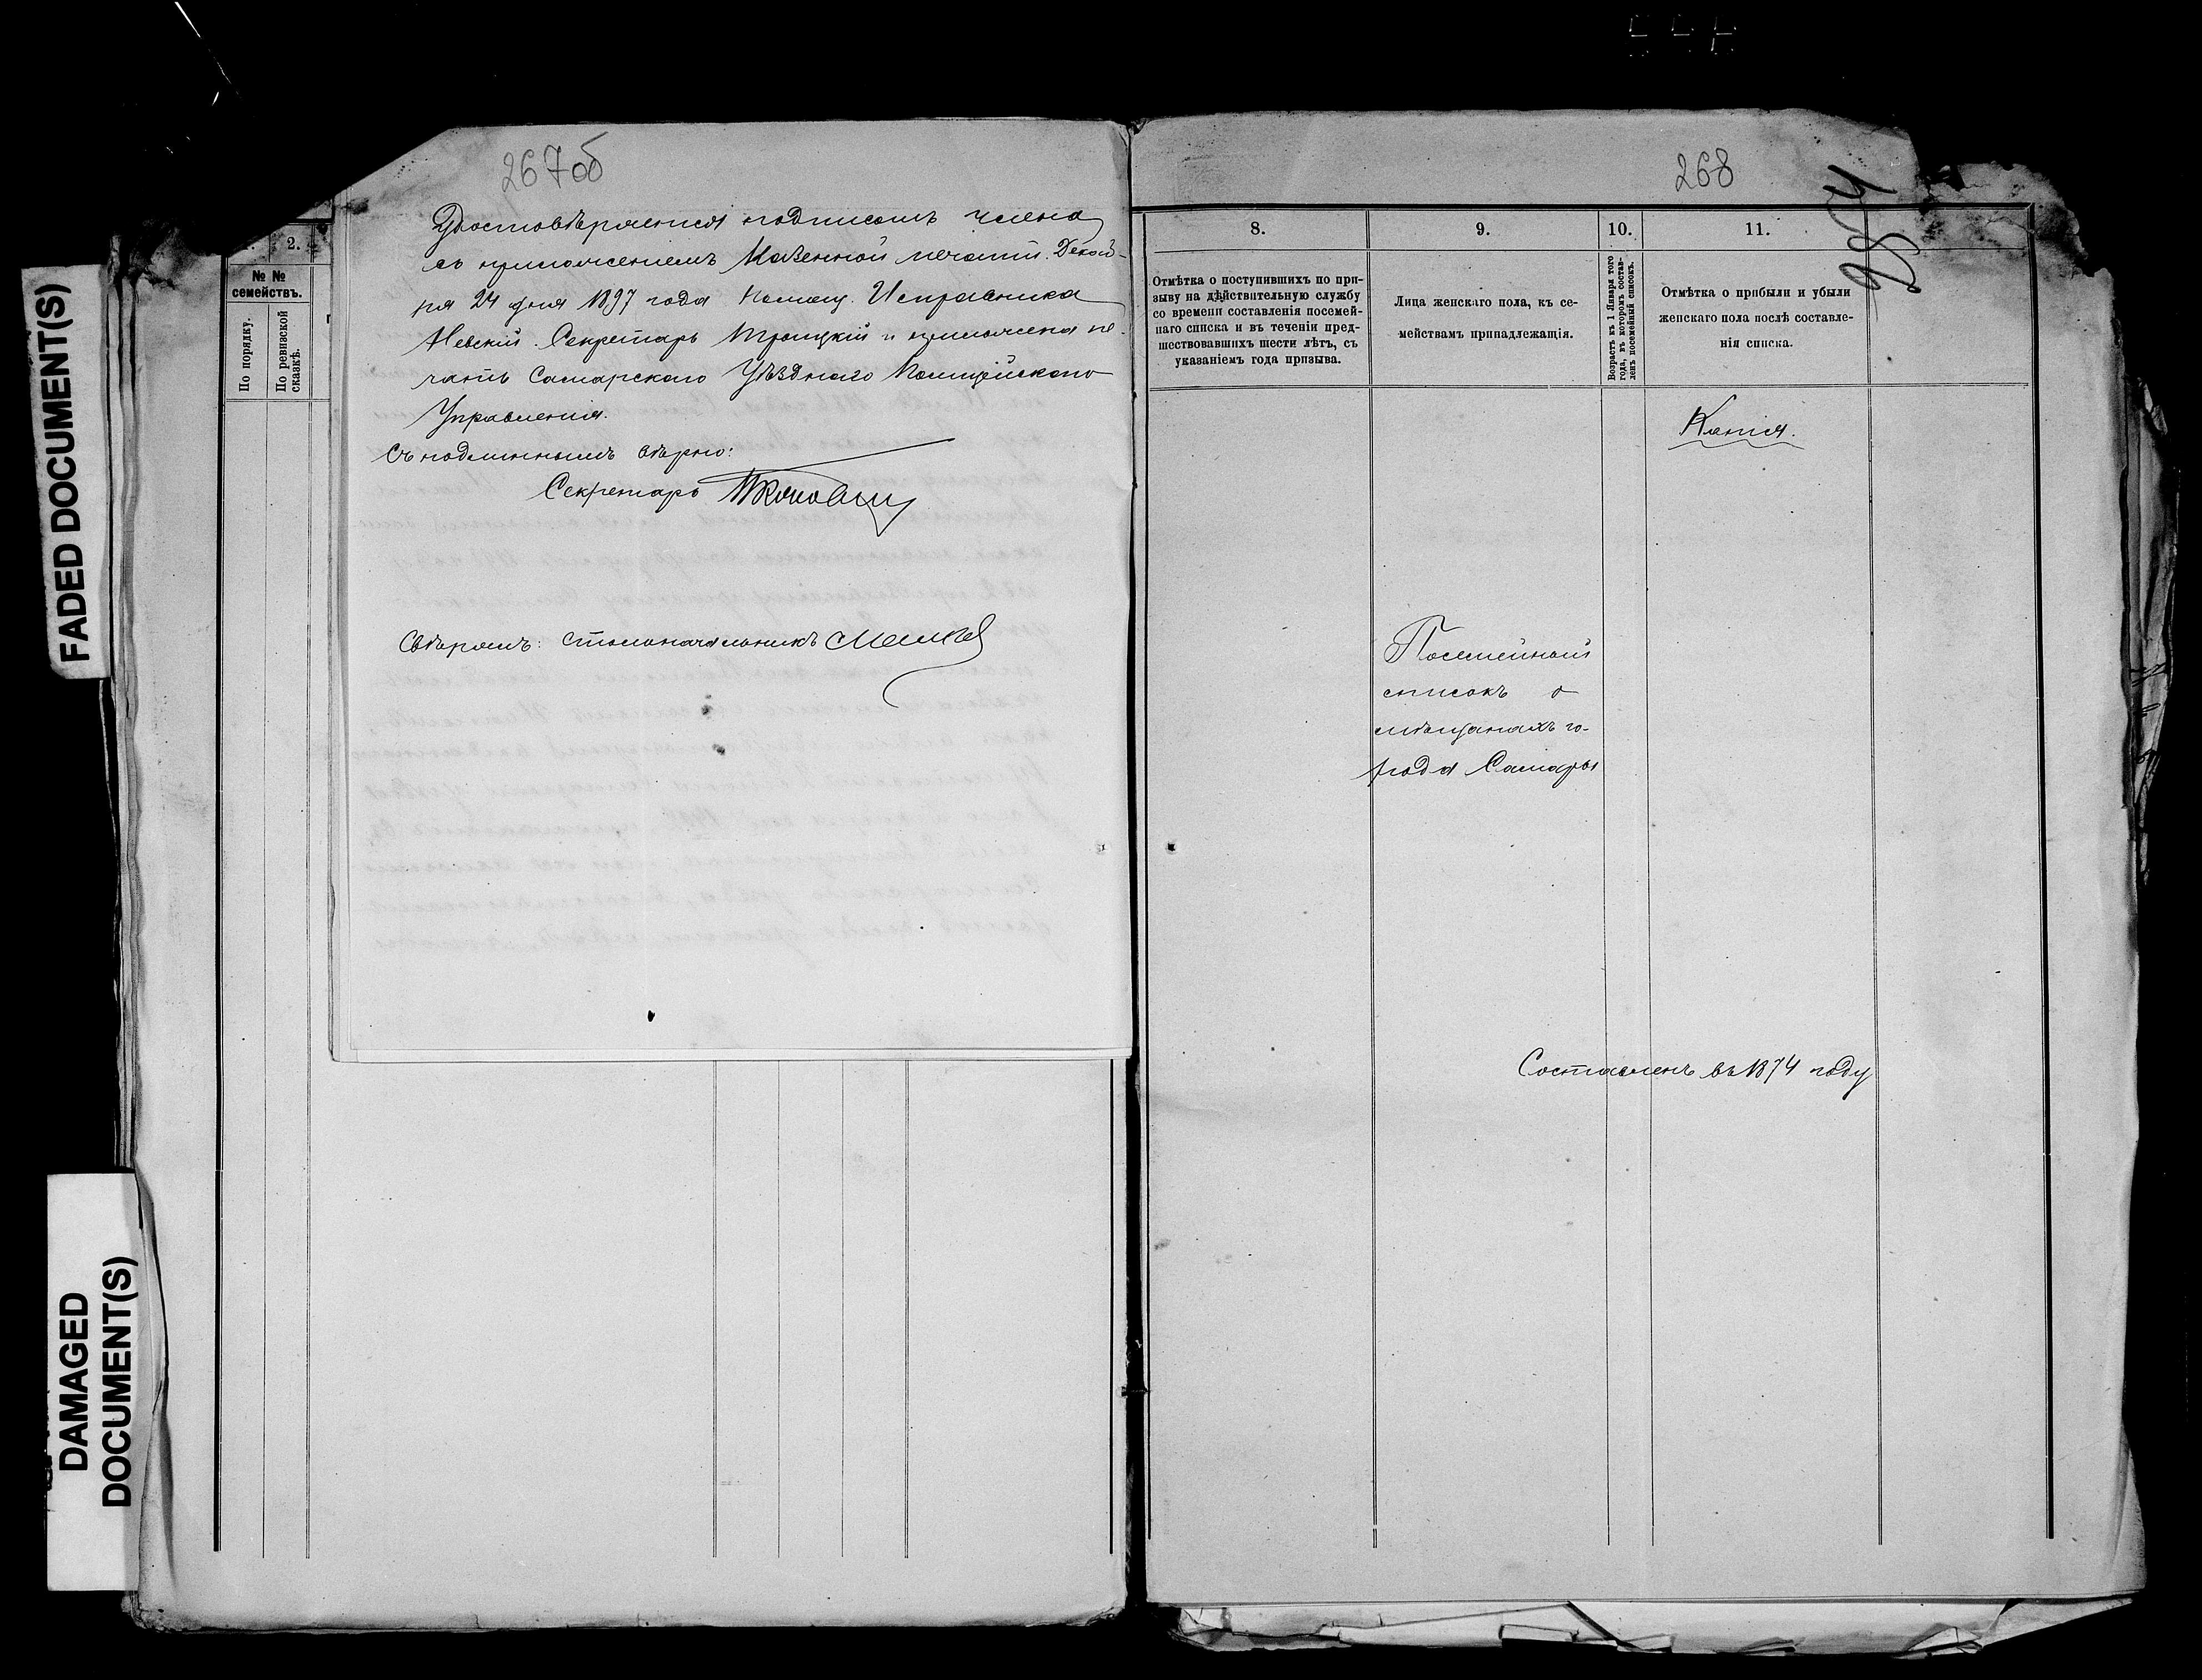 FADED DOCUMENT(S)
DAMAGED
DOCUMENT(S)
267об
Удостовѣряется подписомъ члена
съ приложеніемъ Казенной печати. Декаб-
ря 24 дня 1897 года Помощ. Исправника
Невскій. Секретарь Троицкій и приложена пе-
чать Самарскаго Уѣзднаго Полицейскаго
Управленія.
Съ подлиннымъ вѣрно:
Секретарь
Свѣрялъ: Столоначальникъ
2.
№ №
семействъ.
По порядку.
По ревизской
сказкѣ.
268
284
8.
9.
10.
11.
Отмѣтка о поступившихъ по при-
зыву на дѣйствительную службу
со времени составленія посемей-
наго списка и въ теченіи пред-
шествовавшихъ шести лѣтъ, съ
указаніемъ года призыва.
Лица женскаго пола, къ се-
мействамъ принадлежащія.
Возрастъ къ 1 Января того
года, въ которомъ состав-
ленъ посемейный списокъ.
Отмѣтка о прибыли и убыли
женскаго пола послѣ составле-
нія списка.
Копія.
Посемейный
списокъ о
мѣщанахъ го-
рода Самары
Составленъ въ 1874 году